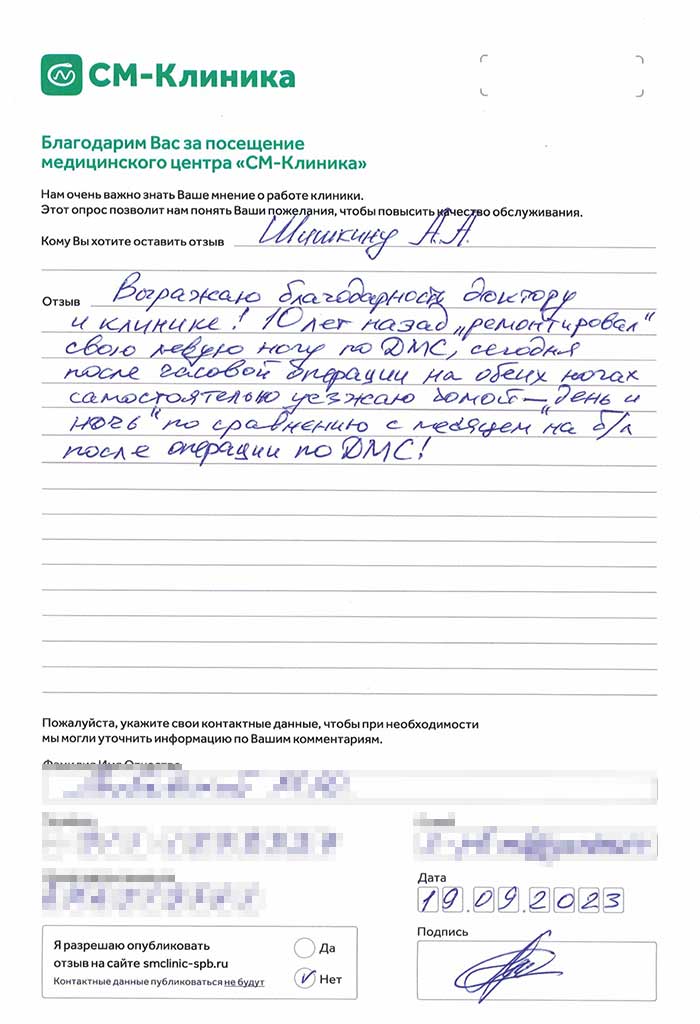 СМ-Клиника
Благодарим Вас за посещение
медицинского центра «СМ-Клиника»
Нам очень важно знать Ваше мнение о работе клиники.
Этот опрос позволит нам понять Ваши пожелания, чтобы повысить качество обслуживания.
Кому Вы хотите оставить отзыв Шишкину А.А.
Отзыв Выражаю благодарность доктору
и клинике! 10 лет назад „ремонтировал“
свою левую ногу по ДМС, сегодня
после часовой операции на обеих ногах
самостоятельно уезжаю домой — „день и
ночь“ по сравнению с месяцем на б/л
после операции по ДМС!
Пожалуйста, укажите свои контактные данные, чтобы при необходимости
мы могли уточнить информацию по Вашим комментариям.
Дата
19.09.2023
Я разрешаю опубликовать
отзыв на сайте smclinic-spb.ru
Контактные данные публиковаться не будут
Да
Нет
Подпись